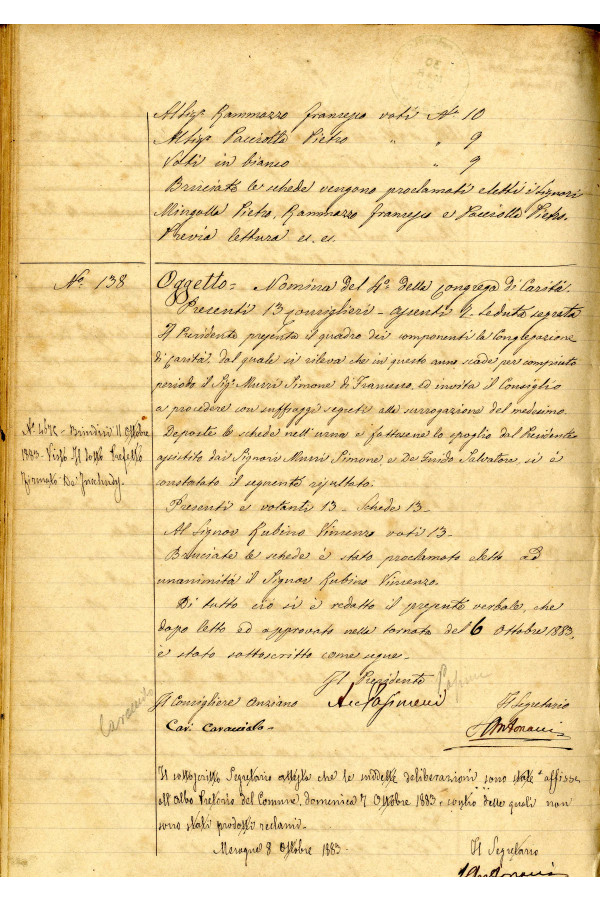 Rammazzo Francesco voti N.º 10
Pacciolla Pietro " " 9
Voti in bianco " 9
Bruciate le schede vengono proclamati eletti i Signori
Mingolla Pietro, Rammazzo Francesco e Pacciolla Pietro.
Previa lettura
Nº 138
Oggetto = Nomina del 4º della Congrega di Carità.
Presenti 13 Consiglieri - Assenti 7. Seduta segreta
Il Presidente presenta il quadro dei componenti la Congregazione
di Carità, dal quale si rileva che in questo anno scade per compiuto
periodo il Sigr Murri Simone di Francesco, ed invita il Consiglio
a procedere con suffraggi segreti alla surrogazione del medesimo.
Deposte le schede nell'urna e fattosene lo spoglio dal Presidente
assistito dai Signori Murri Simone e De Guido Salvatore, si è
constatato il seguente risultato:
Presenti e votanti 13 - Schede 13 -
Al Signor Rubino Vincenzo voti 13 -
Bruciate le schede è stato proclamato eletto ad
unanimità il Signor Rubino Vincenzo.
Di tutto ciò si è redatto il presente verbale, che
dopo letto ed approvato nella tornata del 6 Ottobre 1883,
è stato sottoscritto come segue -
Nº 4675 - Brindisi 11 Ottobre
1883 - Visto Il Sotto Prefetto
Firmato
Il Presidente
Il Consigliere Anziano
Il Segretario
Caraccio
Cav. Caracciolo -
Antonucci
Il sottoscritto Segretario attesta che le suddette deliberazioni sono state affisse
all'Albo Pretorio del Comune, domenica 7 Ottobre 1883, contro delle quali non
sono stati prodotti reclami -
Mesagne 8 Ottobre 1883 -
Il Segretario
Antonucci